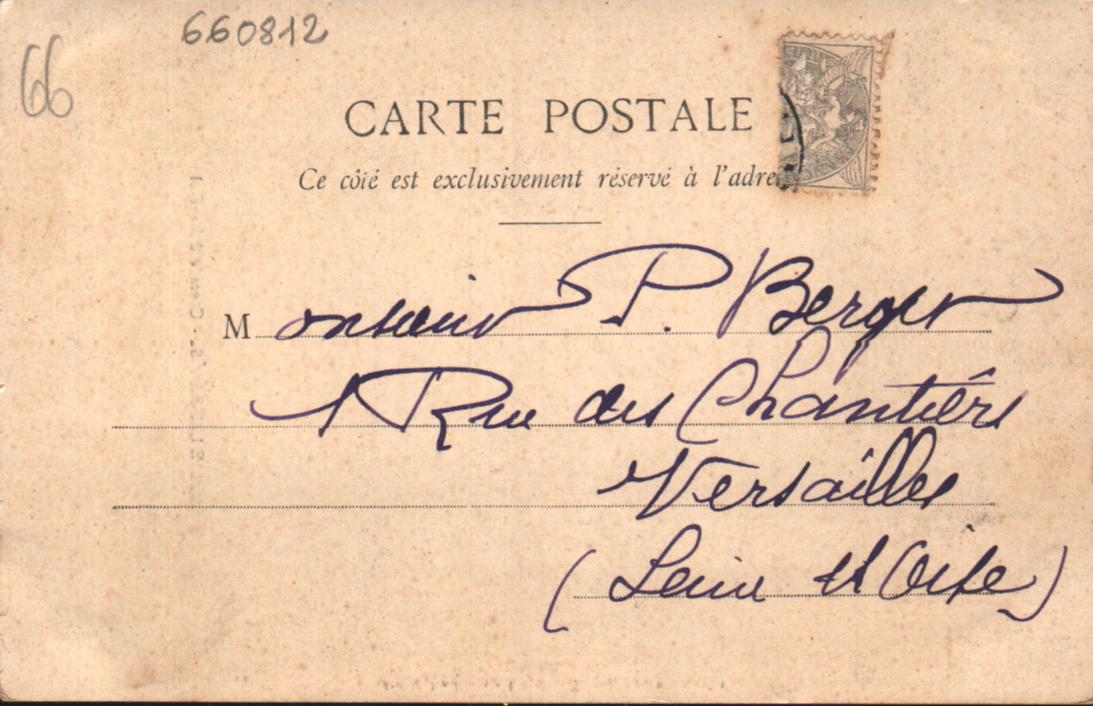 660812
66
CARTE POSTALE
Ce côté est exclusivement réservé à l'adre
Monsieur P. Berger
1 Rue des Chantiers
Versailles
(Seine et Oise)